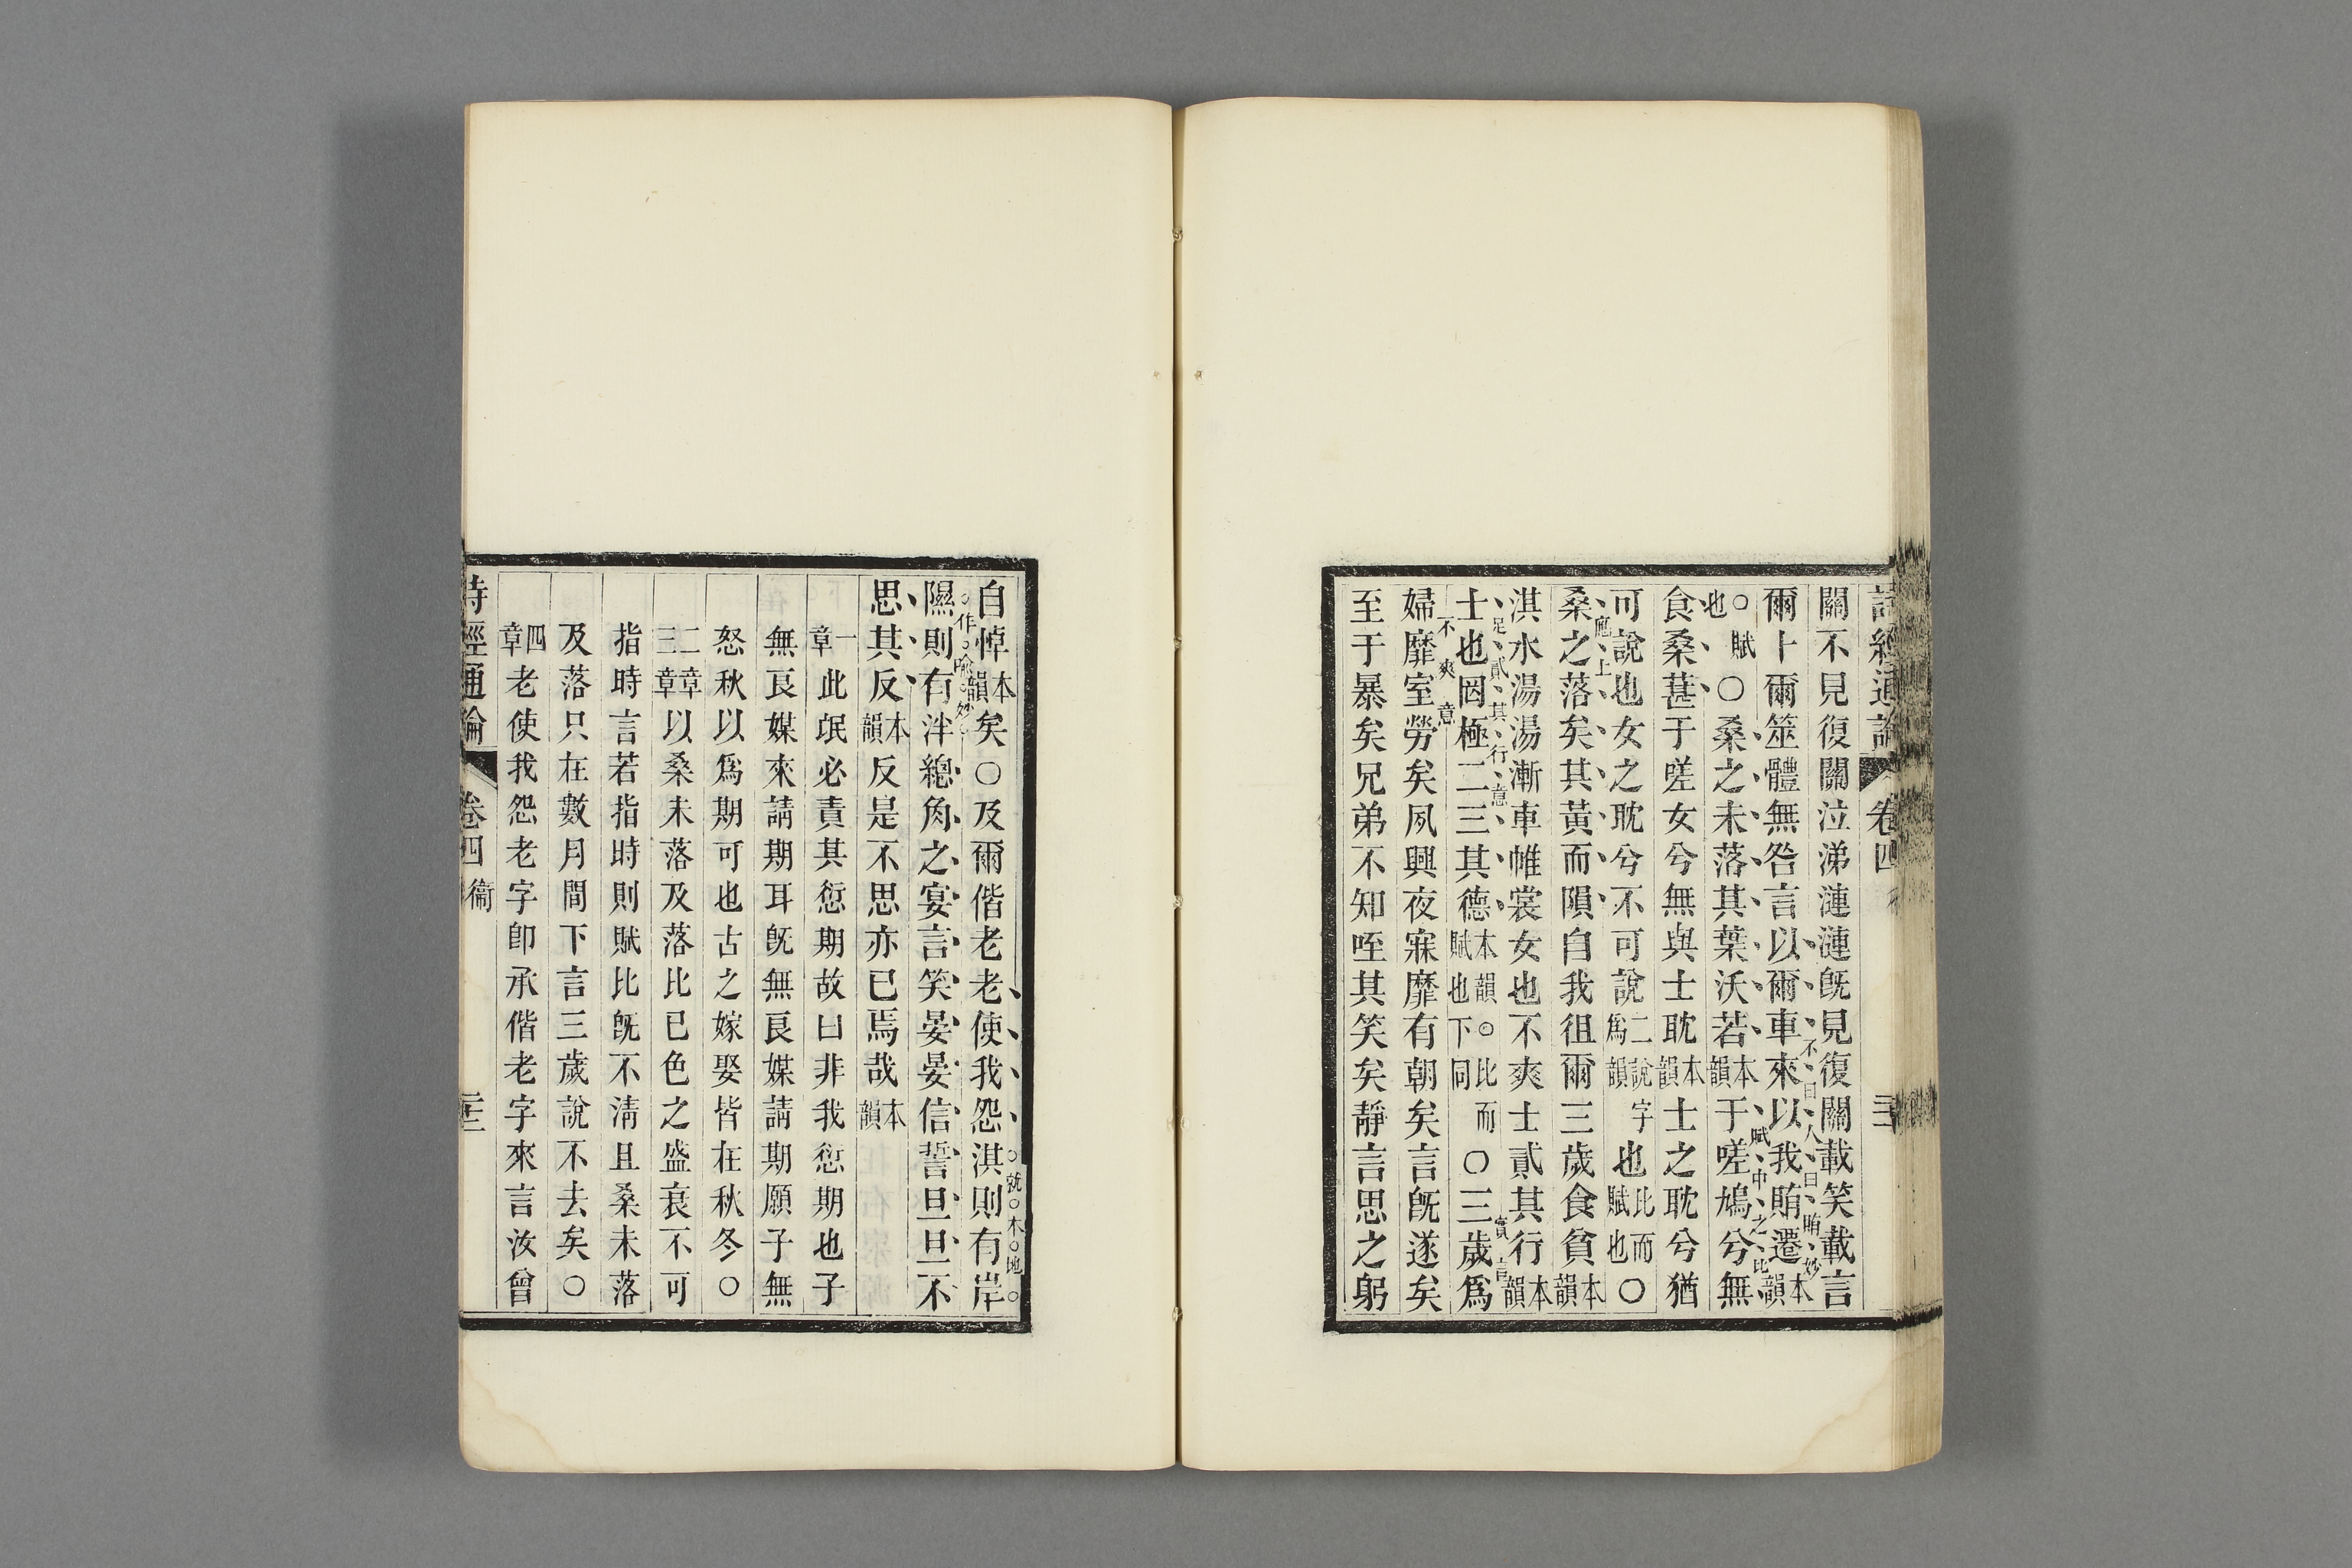 詩經通論 卷四
關不見復關泣涕漣漣旣見復關載笑載言
爾卜爾筮體無咎言以爾車來以我賄遷本韻
不曰人曰賄妙
○賦也○桑之未落其葉沃若本韻于嗟鳩兮無
賦中之比
食桑葚于嗟女兮無與士耽本韻士之耽兮猶
可說也女之耽兮不可說二說字爲韻也比而賦也○
桑之落矣其黃而隕自我徂爾三歲食貧本韻
應上
淇水湯湯漸車帷裳女也不爽士貳其行本韻
士也罔極二三其德本韻○比而賦也下同○三歲爲
足貳其行意
實言
婦靡室勞矣夙興夜寐靡有朝矣言旣遂矣
不爽意
至于暴矣兄弟不知咥其笑矣靜言思之躬
自悼本韻矣○及爾偕老老使我怨淇則有岸
就本地
隰則有泮總角之宴言笑晏晏信誓旦旦不
作喻妙
思其反本韻反是不思亦已焉哉本韻
一章此氓必責其愆期故曰非我愆期也子
無良媒來請期耳旣無良媒請期願子無
怒秋以爲期可也古之嫁娶皆在秋冬○
二章三章以桑未落及落比已色之盛衰不可
指時言若指時則賦比旣不淸且桑未落
及落只在數月間下言三歲說不去矣○
四章老使我怨老字卽承偕老字來言汝曾
詩經通論 卷四 衞